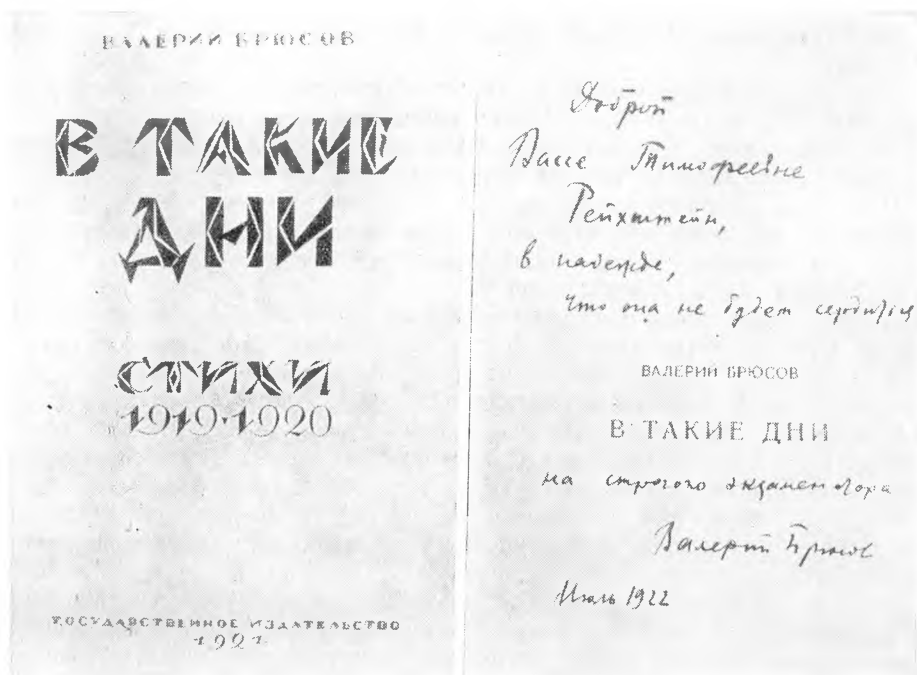 ВАЛЕРИЙ БРЮСОВ
В ТАКИЕ
ДНИ
СТИХИ
1919-1920
ГОСУДАРСТВЕННОЕ ИЗДАТЕЛЬСТВО
1921
Доброй
Вассе Тимофеевне
Рейхштейн,
в надежде,
что она не будет сердиться
ВАЛЕРИЙ БРЮСОВ
В ТАКИЕ ДНИ
на строгого экзаменатора
Валерий Брюсов
Июль 1922